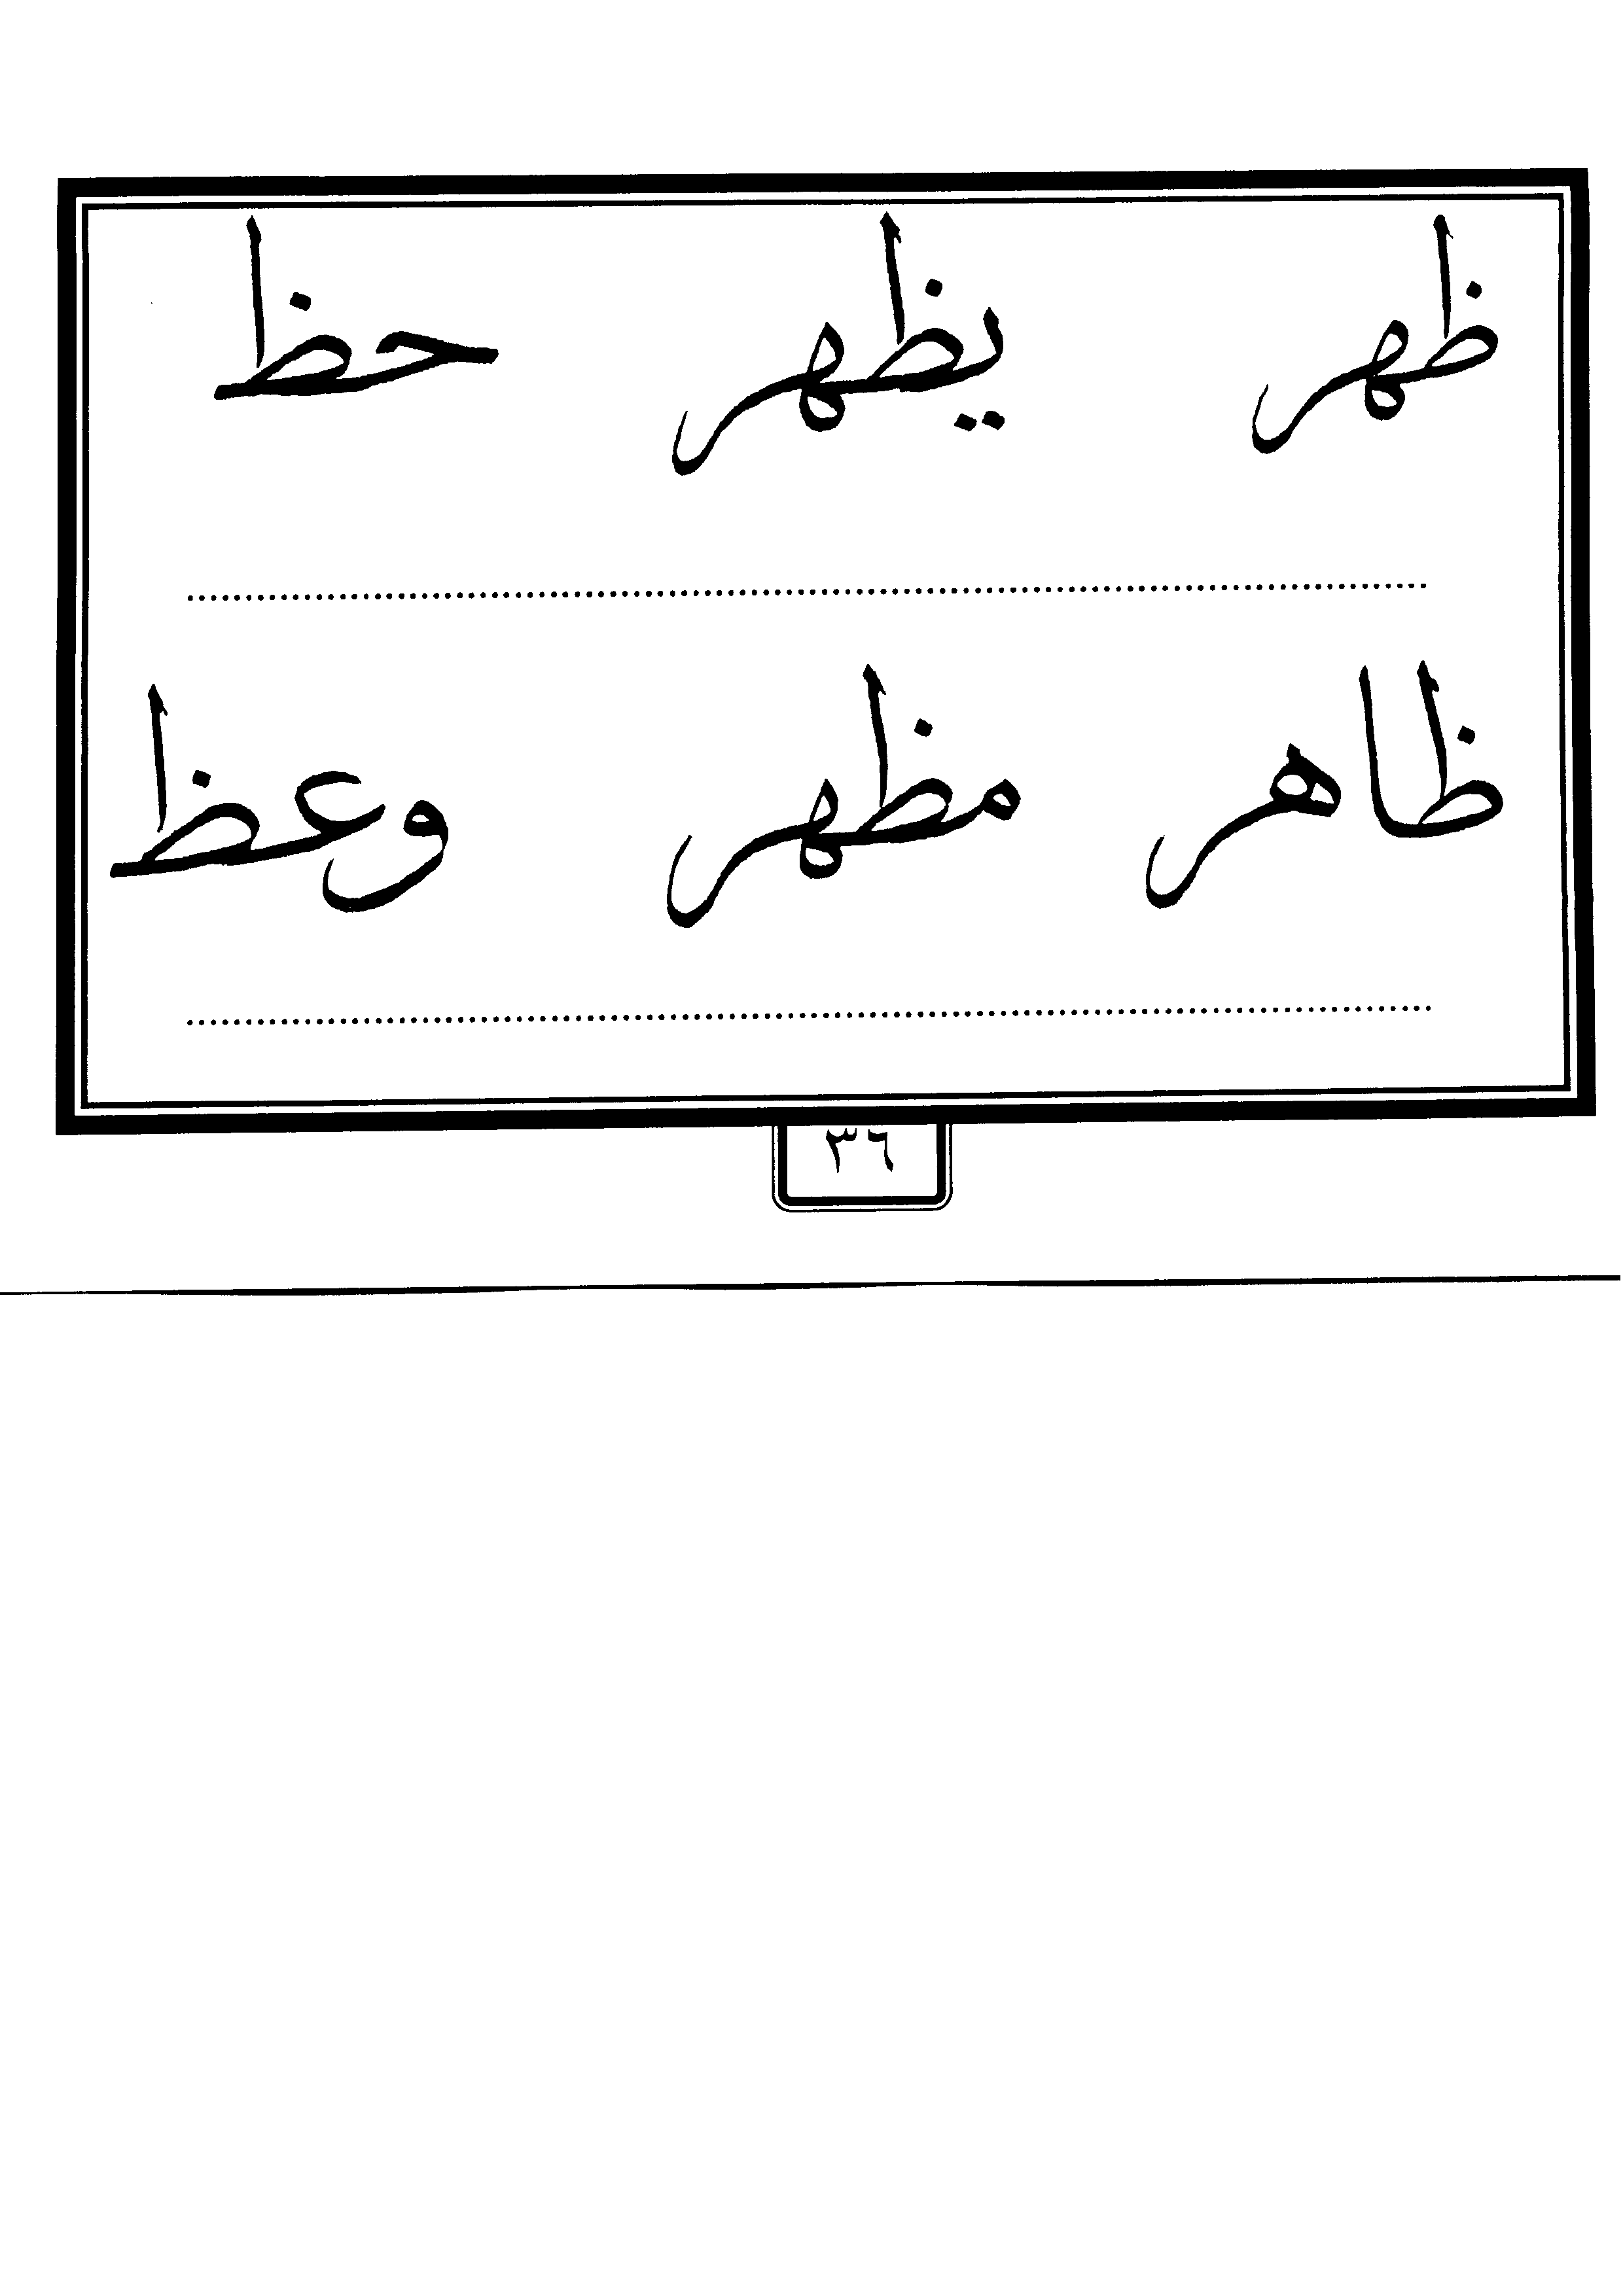 ظهر يظهر حظ
ظاهر مظهر وعظ
٣٦